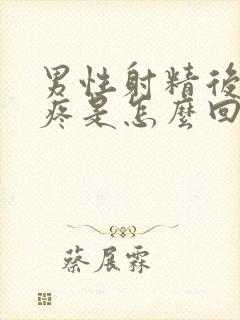 男性射精後
疼是怎麼回
蔡展霖